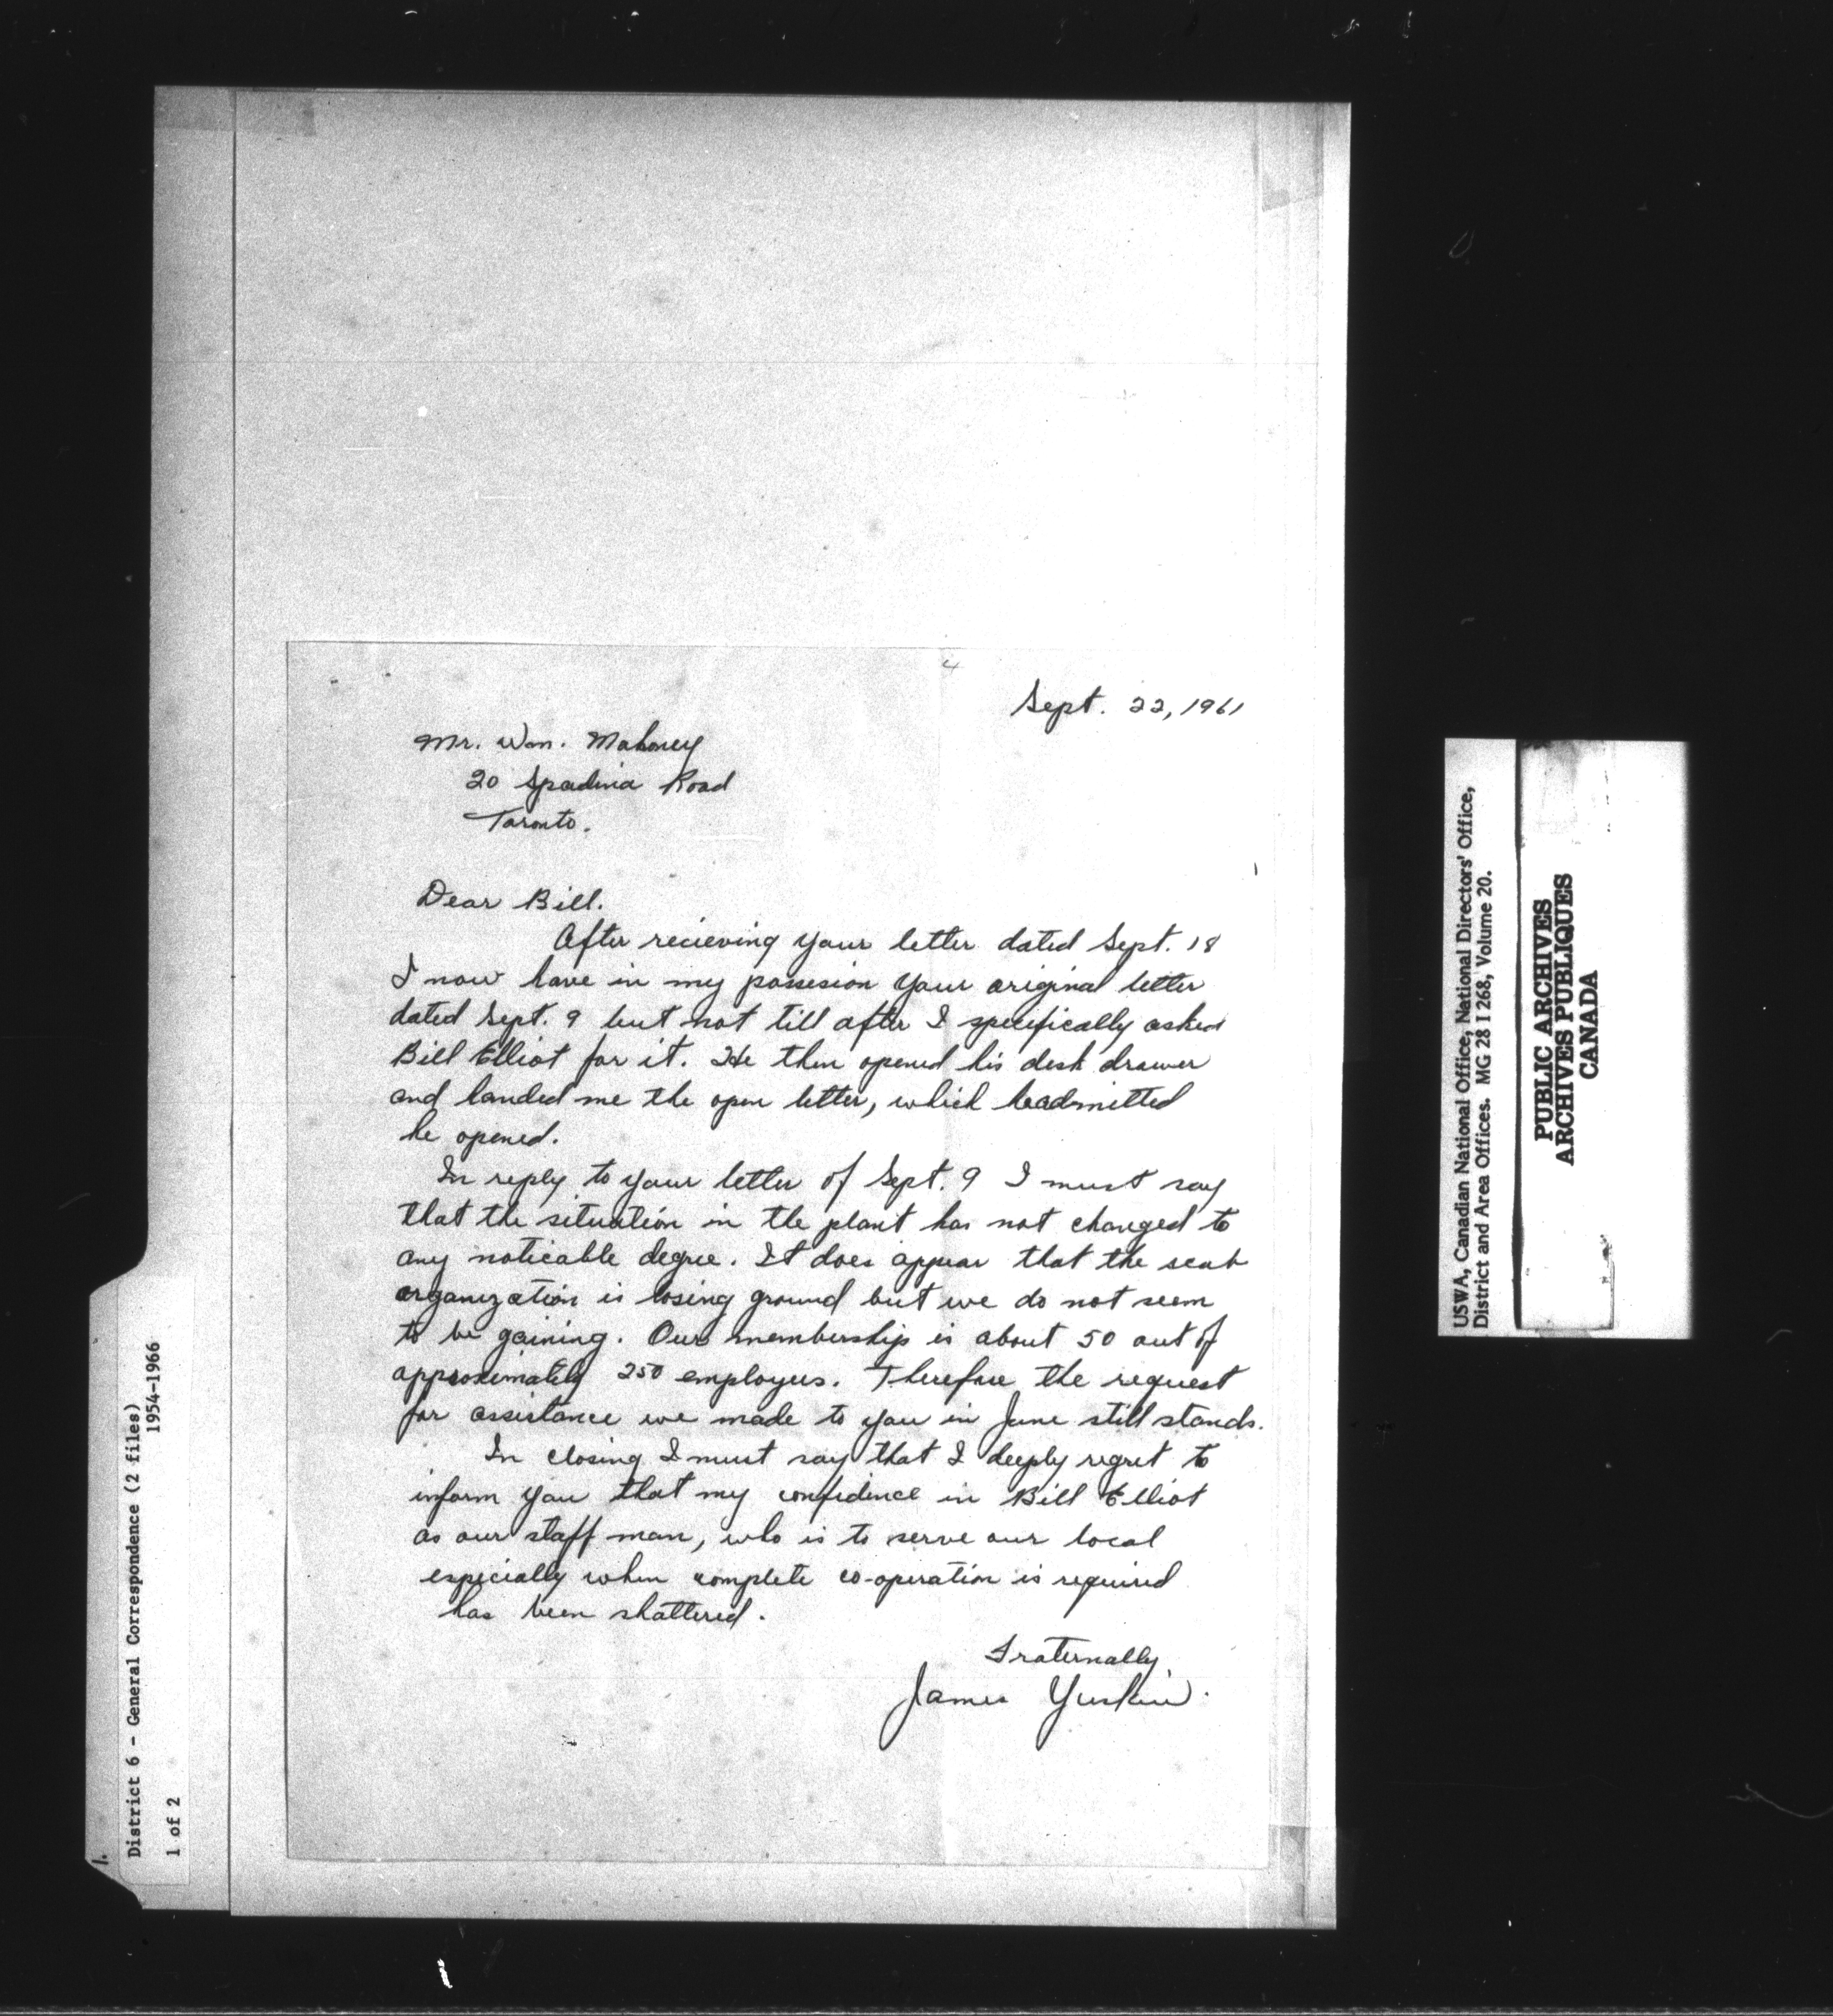 Sept. 22, 1961
Mr. Wm. Mahoney
20 Spadina Road
Toronto.
Dear Bill.
After recieving your letter dated Sept. 18
I now have in my possesion your original letter
dated Sept. 9 but not till after I specifically asked
Bill Elliot for it. He then opened his desk drawer
and handed me the open letter, which he admitted
he opened.
In reply to your letter of Sept. 9 I must say
that the situation in the plant has not changed to
any noticable degree. It does appear that the scab
organization is losing ground but we do not seem
to be gaining. Our membership is about 50 out of
approximately 250 employees. Therefore the request
for assistance we made to you in June still stands.
In closing I must say that I deeply regret to
inform you that my confidence in Bill Elliot
as our staff man, who is to serve our local
especially when complete co-operation is required
has been shattered.
Fraternally,
James Yuskiw.
1.
District 6 - General Correspondence (2 files)
1954-1966
1 of 2
USWA, Canadian National Office, National Directors' Office,
District and Area Offices. MG 28 I 268, Volume 20.
PUBLIC ARCHIVES
ARCHIVES PUBLIQUES
CANADA